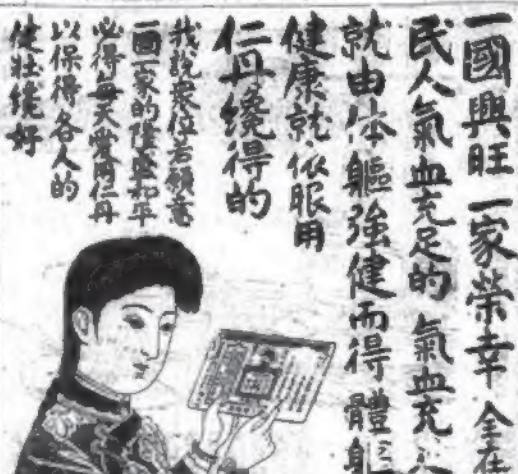 一國興旺 一家榮幸 全在
民人氣血充足的 氣血充
就由体軀強健而得 體
健康就依服用
仁丹纔得的
我說衆位若願意
一國一家的隆盛和平
必得每天愛用仁丹
以保得各人的
健壯纔好